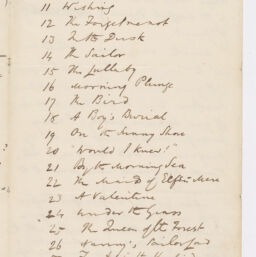 11 Wishing
12 The Forget me not
13 In the Dusk
14 The Sailor
15 The Lullaby
16 Morning Plunge
17 The Bird
18 A Boy's Burial
19 On the Sunny Shore
20 "Would I Knew!"
21 By the Morning Sea
22 The Maid of Elfin Mere
23 A Valentine
24 Under the Grass
25 The Queen of the Forest
26